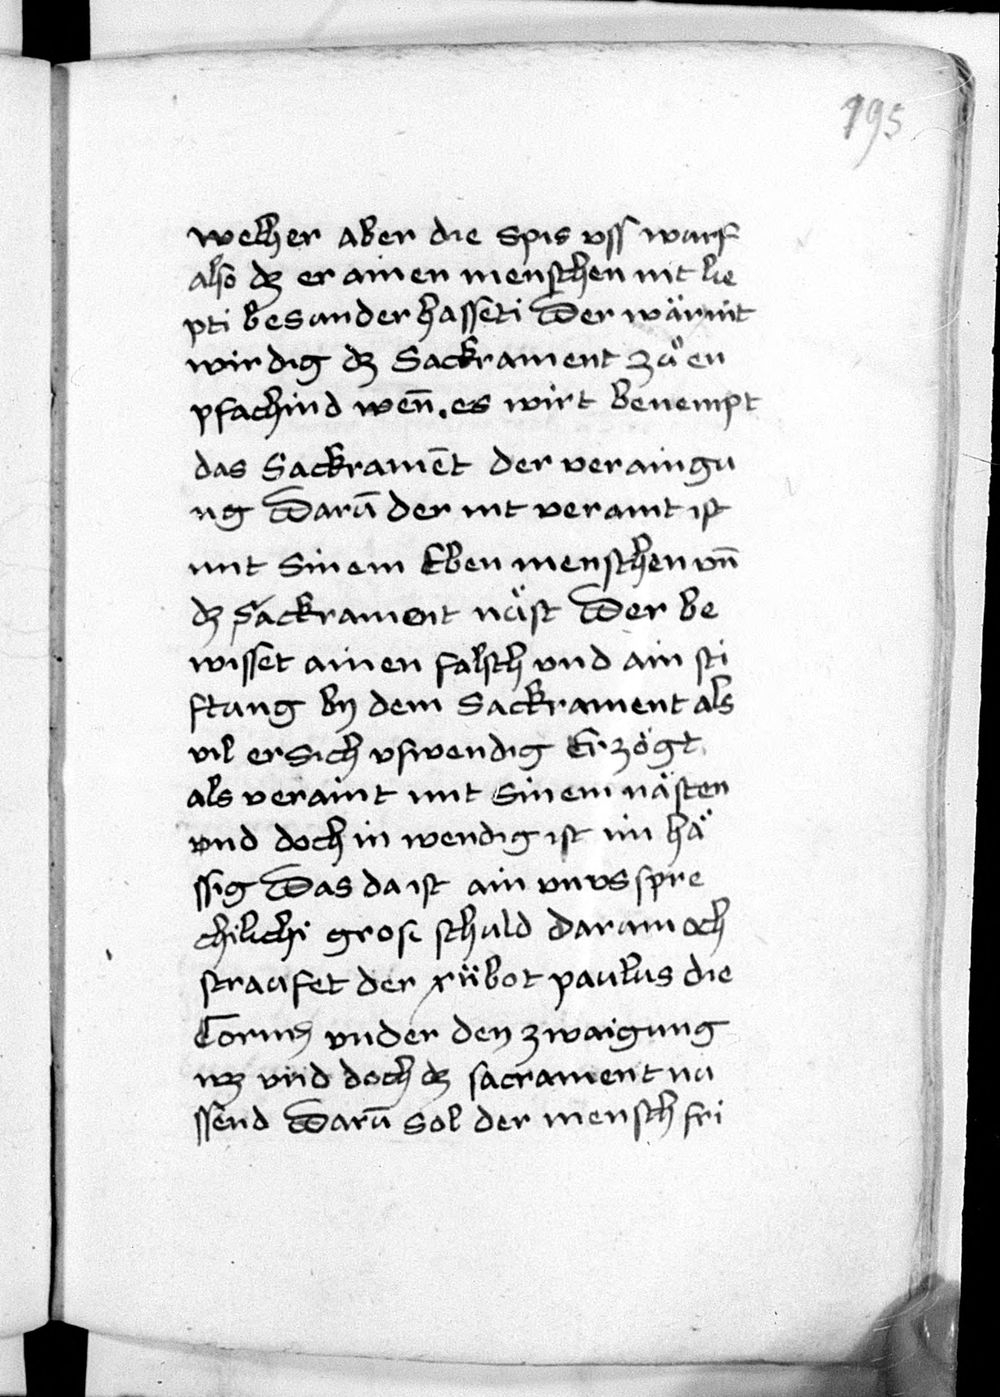 195
welher aber die spis vſſ warf
alſo dz er ainen menſchen nit lie
pti besunder haſſeti Der wär nit
wirdig dz Sackrament zuͦ en
pfachind wen̄ . es wirt benempt
das Sackramēt der veraingu
ng Darū der nit veraint iſt
mit Sinem Eben menſchen vn̄
dz Sackrament nüſt Der be
wiſſet ainen falſch vnd ain sti
ftung by dem Sackrament als
vil er Sich vſwendig Erzögt
als veraint mit Sinem näſten
vnd doch in wendig iſt im hä
ſſig Das da iſt ain vnvs ſpre
chilichi groſſ ſchuld Darum och
ſtraufet der xiibot paulus die
under den zwaigung
wz vnd doch dz sacrament nu
ſſend Darū Sol der menſch fri